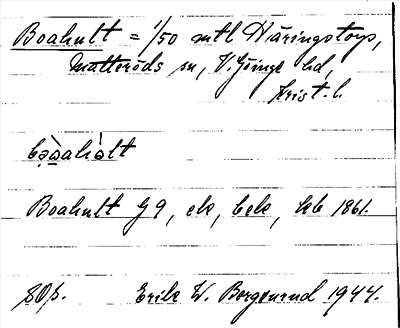 Boahult = 1/50 mtl Häringstorp,
Matteröds sn, V. Göinge hd,
Krist. l.
Boahult G 9, ek, bek, kb 1861.
SOp. Erik W. Borgeund 1944.